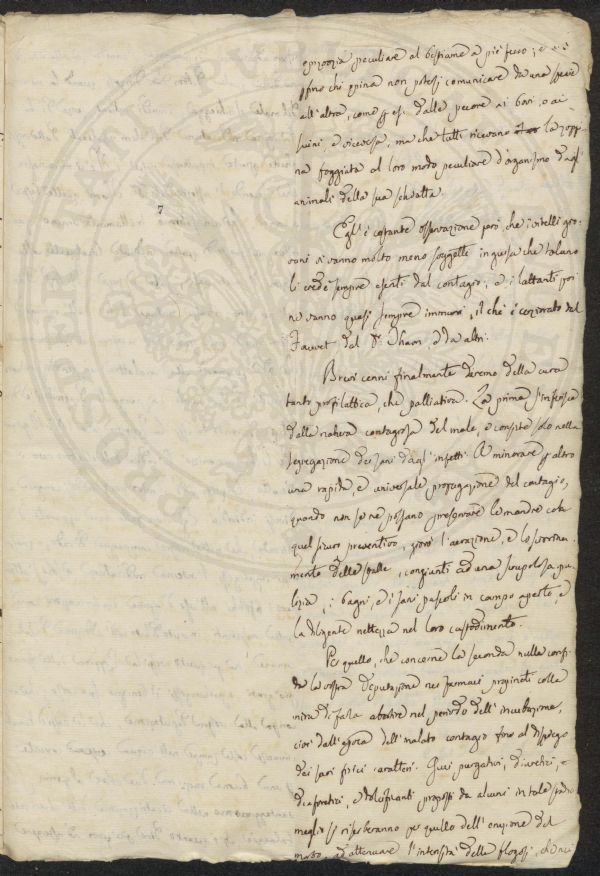 epizoozia peculiare al bestiame a piè fesso; e
chi opina non potersi comunicare da una specie
all'altra, come p. es. dalle pecore ai bovi, o ai
suini, e viceversa, ma che tutti ricevano la zoppi-
na foggiata al loro modo peculiare d'organismo dagli
animali della sua schiatta.
7
Egl'è costante osservazione però, che i vitelli gio-
vani vi vanno molto meno soggetti in guisa che taluno
li crede sempre esenti dal contagio, e i lattanti poi
ne vanno quasi sempre immuni, il che è
dal D.r e da altri.
Brevi cenni finalmente daremo della cura
tanto profilattica, che palliativa. La prima s'inferisce
dalla natura contagiosa del male, e consiste solo nella
segregazione dei sani dagl'infetti. A minorare p. altro
una rapida, e universale propagazione del contagio,
quando non se ne possano preservare le mandre con
quel sicuro preventivo, giova l'aerazione, e lo
mento delle stalle, congiunti ad una scrupolosa pu-
lizia, i bagni, ed i sani pascoli in campo aperto, e
la diligente nettezza nel loro custodimento.
Per quello, che concerne la seconda nulla confi-
da la vostra Deputazione ne' farmaci propinati colla
mira di farla abortire nel periodo dell'incubazione,
cioè dall'epoca dell'inalato contagio fino al dispiego
dei suoi fisici caratteri. Quei purgativi, diuretici, e
diaforetici, e tolsificanti proposti da alcuni in tale stadio
meglio si riserberanno per quello dell'eruzione del
morbo, ad attenuare l'intensità delle flogosi,